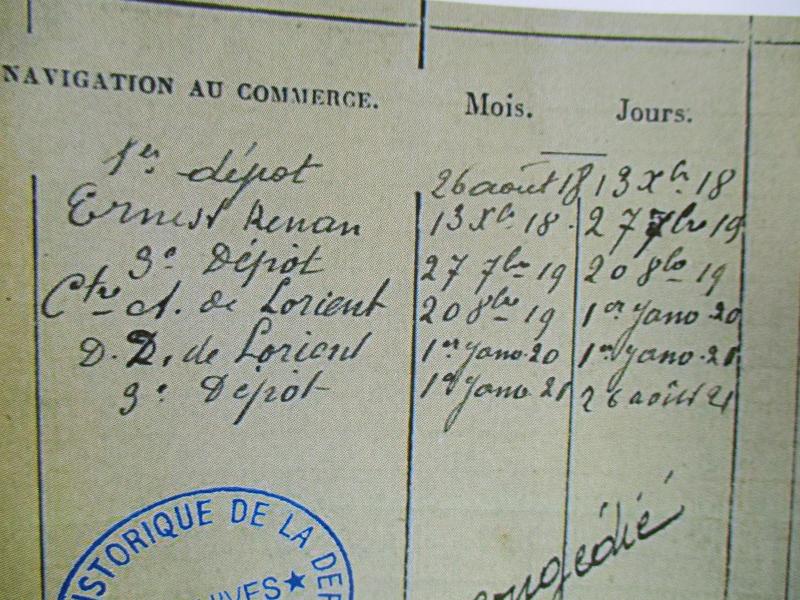 NAVIGATION AU COMMERCE. Mois. Jours.
1er dépôt 26 août 18 13 Xbre 18
Ernest Renan 13 Xbre 18 27 7bre 19
3e Dépôt 27 7bre 19 20 8bre 19
Ctre A. de Lorient 20 8bre 19 1er Janv. 20
D. D. de Lorient 1er Janv. 20 1er Janv. 21
3e Dépôt 1er Janv. 21 26 août 21
congédié
ISTORIQUE DE LA DÉF
IVES ★